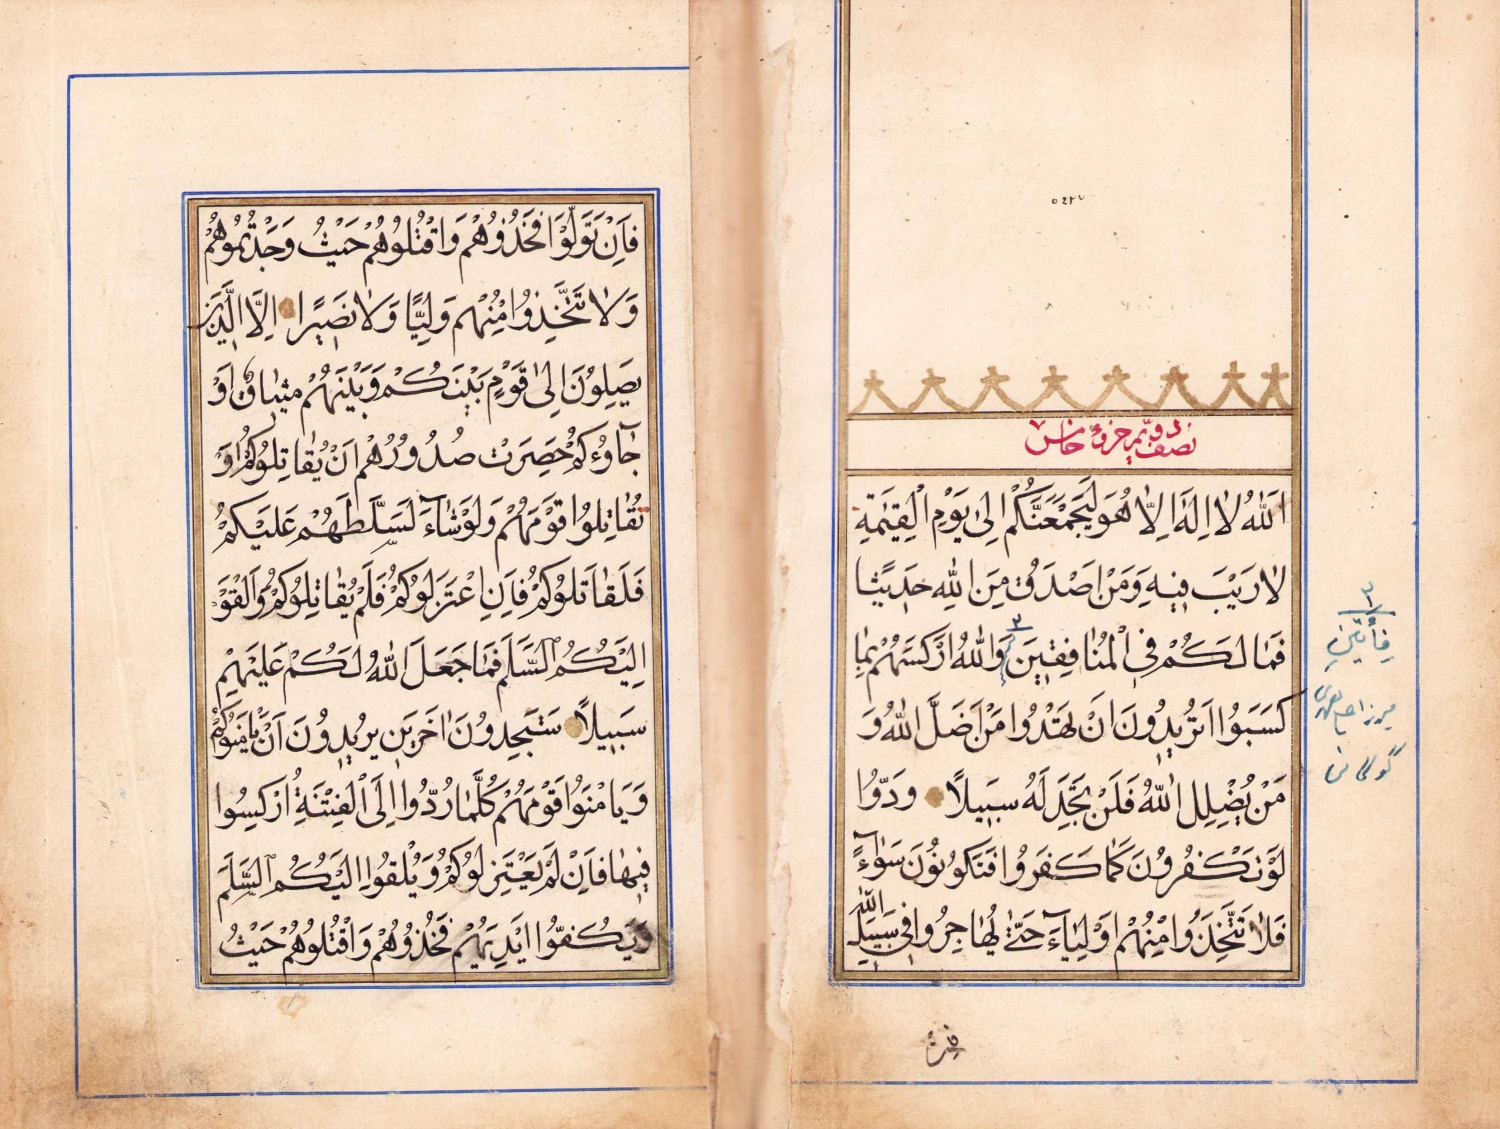 نصف دویم جزوء خامس
اَللّٰهُ لَا اِلٰهَ اِلَّا هُوَ لَيَجْمَعَنَّكُمْ اِلىٰ يَوْمِ الْقِيٰمَةِ
لَا رَيْبَ فِيهِ وَمَنْ اَصْدَقُ مِنَ اللّٰهِ حَدِيثًا
فَمَا لَكُمْ فِى الْمُنَافِقِينَ وَاللّٰهُ اَرْكَسَهُمْ بِمَا
كَسَبُوا اَتُرِيدُونَ اَنْ تَهْدُوا مَنْ اَضَلَّ اللّٰهُ وَ
مَنْ يُضْلِلِ اللّٰهُ فَلَنْ تَجِدَ لَهُ سَبِيلًا وَدُّوا
لَوْ تَكْفُرُونَ كَمَا كَفَرُوا فَتَكُونُونَ سَوَآءً
فَلَا تَتَّخِذُوا مِنْهُمْ اَوْلِيَآءَ حَتّٰى يُهَاجِرُوا فِى سَبِيلِ اللّٰهِ
فِأَتَيْنِ
فَاِنْ تَوَلَّوْا فَخُذُوهُمْ وَاقْتُلُوهُمْ حَيْثُ وَجَدْتُمُوهُمْ
وَلَا تَتَّخِذُوا مِنْهُمْ وَلِيًّا وَلَا نَصِيرًا اِلَّا الَّذِينَ
يَصِلُونَ اِلىٰ قَوْمٍ بَيْنَكُمْ وَبَيْنَهُمْ مِيثَاقٌ اَوْ
جَآؤُكُمْ حَصِرَتْ صُدُورُهُمْ اَنْ يُقَاتِلُوكُمْ اَوْ
يُقَاتِلُوا قَوْمَهُمْ وَلَوْ شَآءَ لَسَلَّطَهُمْ عَلَيْكُمْ
فَلَقَاتَلُوكُمْ فَاِنِ اعْتَزَلُوكُمْ فَلَمْ يُقَاتِلُوكُمْ وَاَلْقَوْا
اِلَيْكُمُ السَّلَمَ فَمَا جَعَلَ اللّٰهُ لَكُمْ عَلَيْهِمْ
سَبِيلًا سَتَجِدُونَ اٰخَرِينَ يُرِيدُونَ اَنْ يَأْمَنُوكُمْ
وَيَأْمَنُوا قَوْمَهُمْ كُلَّمَا رُدُّوا اِلَى الْفِتْنَةِ اُرْكِسُوا
فِيهَا فَاِنْ لَمْ يَعْتَزِلُوكُمْ وَيُلْقُوا اِلَيْكُمُ السَّلَمَ
وَيَكُفُّوا اَيْدِيَهُمْ فَخُذُوهُمْ وَاقْتُلُوهُمْ حَيْثُ